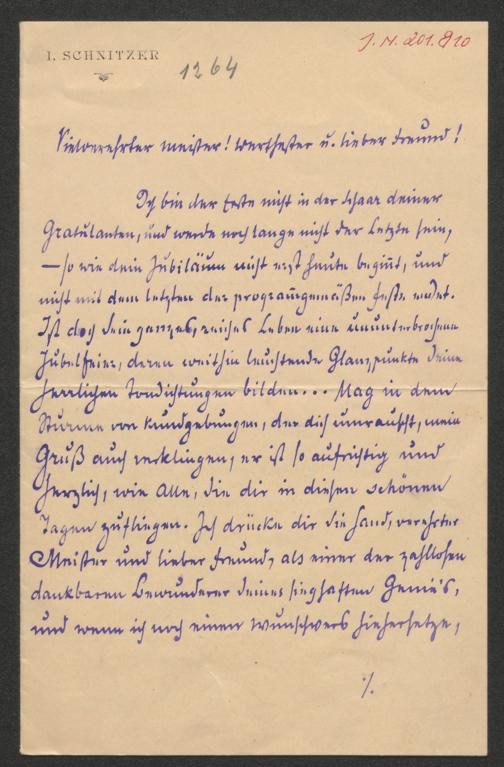 I. SCHNITZER
1264
J. N. 201.810
Vielverehrter Meister! Werthester u. lieber Freund!
Ich bin der Erste nicht in der Schaar deiner
Gratulanten, und werde noch lange nicht der Letzte sein,
— so wie dein Jubiläum nicht erst heute beginnt, und
nicht mit dem letzten der programmgemäßen Feste endet.
Ist doch dein ganzes, reiches Leben eine ununterbrochene
Jubelfeier, deren weithin leuchtende Glanzpunkte deine
herrlichen Tondichtungen bilden... Mag in dem
Sturme von Kundgebungen, der dich umrauscht, mein
Gruß auch verklingen, er ist so aufrichtig und
herzlich, wie Alle, die dir in diesen schönen
Tagen zufliegen. Ich drücke dir die Hand, verehrter
Meister und lieber Freund, als einer der zahllosen
dankbaren Bewunderer deines sieghaften Genie's,
und wenn ich noch einen Wunschvers hiehersetze,
./.